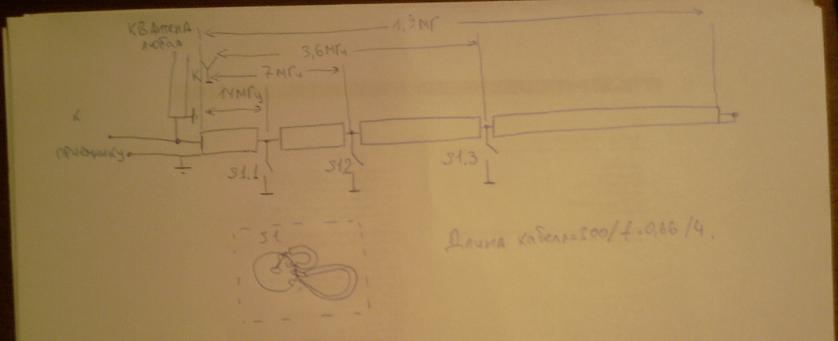 КВ антена
любая
1,3 МГ
3,6 МГц
7 МГц
14 МГц
К
к
приемнику
S1.1
S1.2
S1.3
S1
Длина кабеля=300/f·0,66/4.